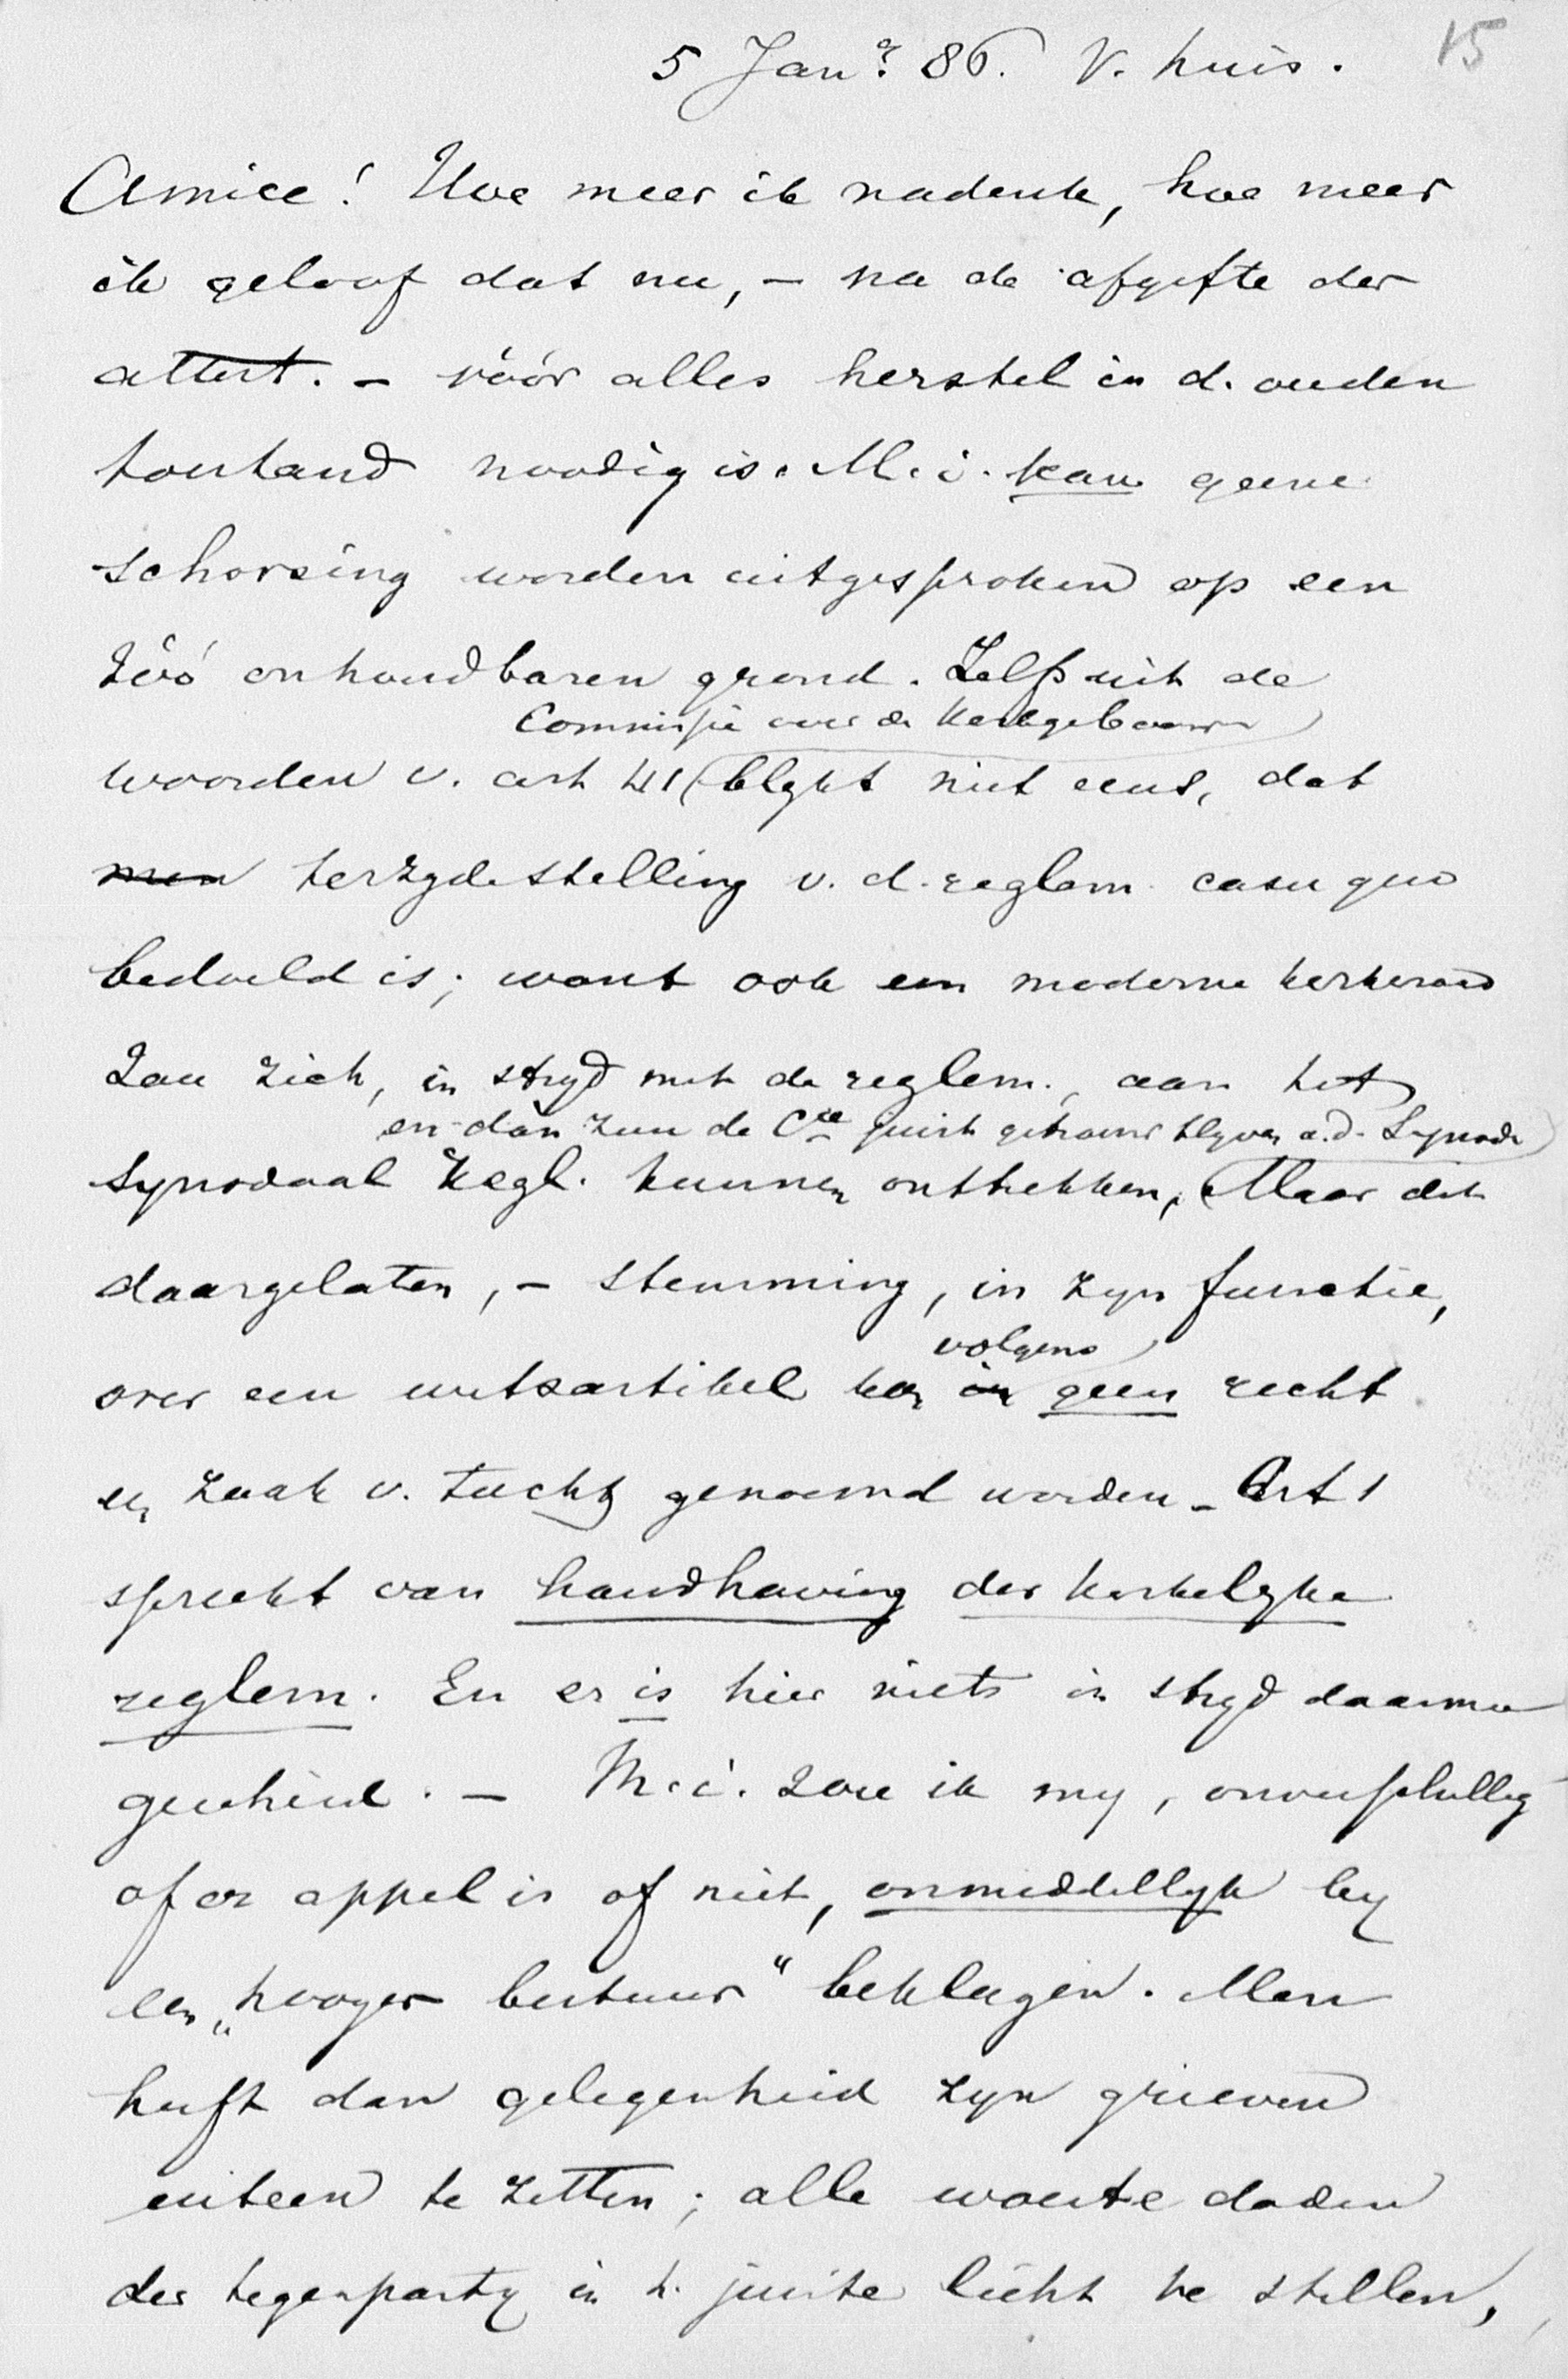 15
5 Jan.r 86. V. huis.
Amice! Hoe meer ik nadenk, hoe meer
ik geloof dat nu, – na de afgifte der
attest. – vóór alles herstel in d. ouden
toestand noodig is. M.i. kan geene
schorsing worden uitgesproken op een
zóó onhoudbaren grond. Zelfs uit de
Commissie over de kerkgebouwen
woorden v. art 41 blykt niet eens, dat
men terzydestelling v. d. reglem. casu quo
bedoeld is; want ook een moderne kerkeraad
zou zich, in stryd met de reglem., aan het
en dàn zou de Cie juist getrouw blyven a.d. Synode
Synodaal Regl. kunnen onttrekken, Maar dit
daargelaten, – stemming, in zyn functie,
volgens
over een wetsartikel kan in geen recht
een zaak v. tucht genoemd worden – Art 1
spreekt van handhaving der kerkelyke
reglem. En er is hier niets in stryd daarmee
geschied. – M.i. zou ik my, onverschillig
of er appel is of niet, onmiddellyk by
een „hooger bestuur" beklagen. Men
heeft dan gelegenheid zyn grieven
uiteen te zetten; alle woeste daden
der tegenparty in h. juiste licht te stellen,